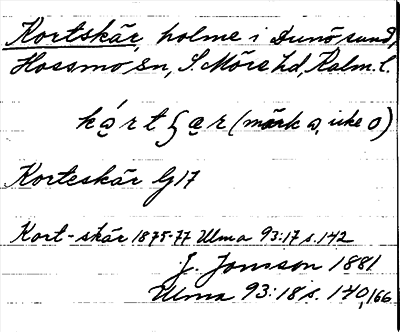 Kortskär, holme i Dunö sund,
Hossmo sn, S. Möre hd, Kalm. l.
(märk a, icke o)
Korteskär G17
Kort-skär 1875-77 Ulma 93:17 s. 142
J. Jonsson 1881
Ulma 93:18 s. 140, 166